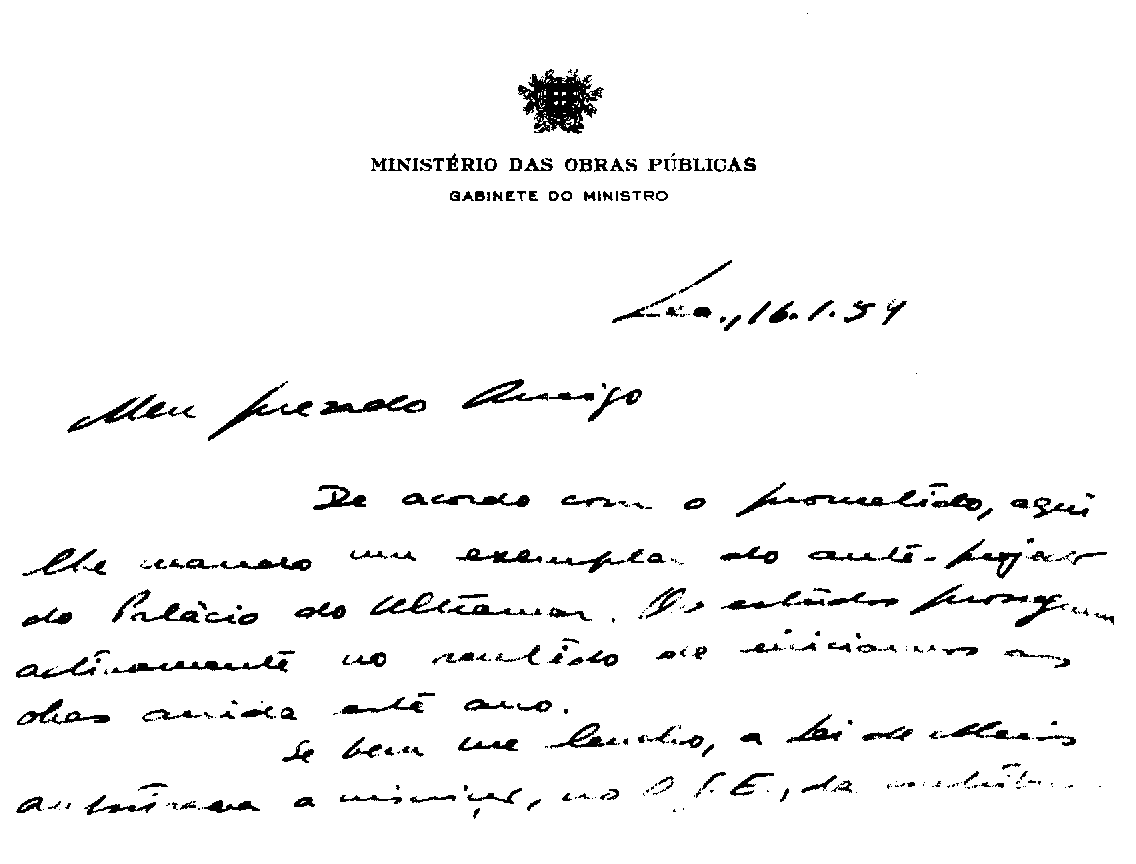 MINISTÉRIO DAS OBRAS PÚBLICAS
GABINETE DO MINISTRO
Lxa., 16.1.59
Meu prezado Amigo
De acordo com o prometido, aqui
lhe mando um exemplar do ante-projecto
do Palácio do Ultramar. Os estudos prosseguem
activamente no sentido de iniciarmos as
obras ainda este ano.
Se bem me lembro, a Lei de Meios
autorizava a inscrição, no O.G.E., da